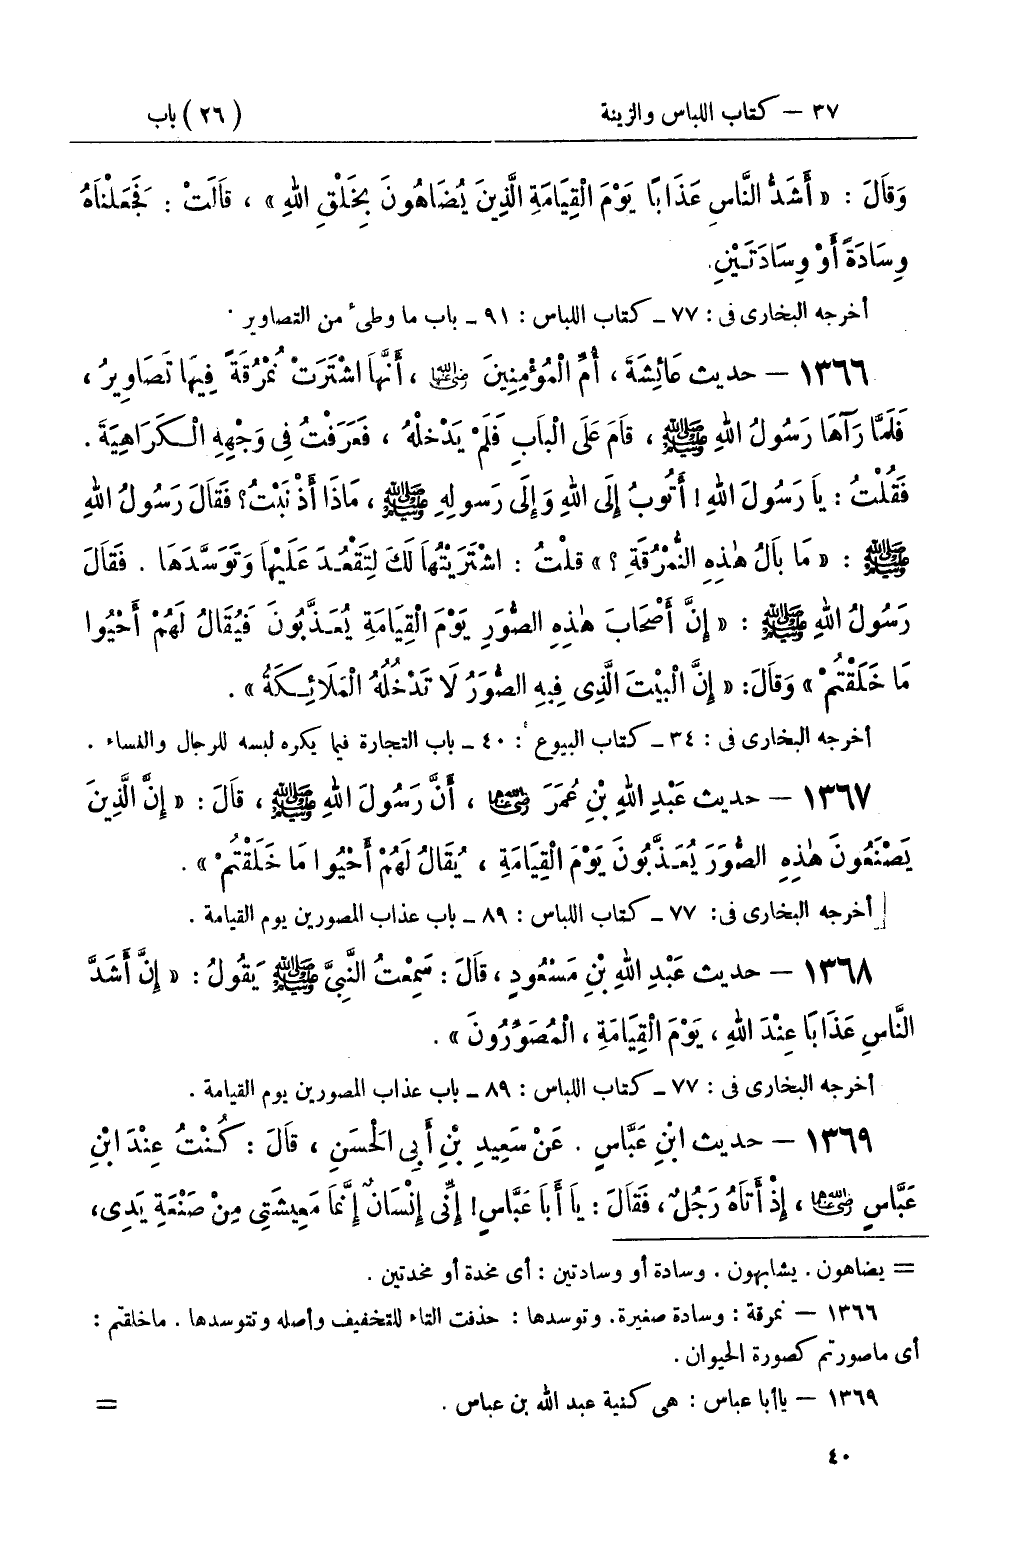 ٣٧ – كتاب اللباس والزينة (٢٦) باب
وَقَالَ : « أَشَدُّ النَّاسِ عَذَابًا يَوْمَ الْقِيَامَةِ الَّذِينَ يُضَاهُونَ بِخَلْقِ اللهِ » ، قَالَتْ : فَجَعَلْنَاهُ
وِسَادَةً أَوْ وِسَادَتَيْنِ.
أخرجه البخارى فى : ٧٧ ـ كتاب اللباس : ٩١ ـ باب ما وطىء من التصاوير .
١٣٦٦ – حديث عَائِشَةَ ، أُمِّ الْمُؤْمِنِينَ رضي الله عنها ، أَنَّهَا اشْتَرَتْ نُمْرُقَةً فِيهَا تَصَاوِيرُ ،
فَلَمَّا رَآهَا رَسُولُ اللهِ ﷺ ، قَامَ عَلَى الْبَابِ فَلَمْ يَدْخُلْهُ ، فَعَرَفْتُ فِى وَجْهِهِ الْكَرَاهِيَةَ .
فَقُلْتُ : يَا رَسُولَ اللهِ ! أَتُوبُ إِلَى اللهِ وَإِلَى رَسولِهِ ﷺ ، مَاذَا أَذْنَبْتُ؟ فَقَالَ رَسُولُ اللهِ
ﷺ : « مَا بَالُ هٰذِهِ النُّمْرُقَةِ ؟ » قلْتُ : اشْتَرَيْتُهَا لَكَ لِتَقْعُدَ عَلَيْهَا وَتَوَسَّدَهَا . فَقَالَ
رَسُولُ اللهِ ﷺ : « إِنَّ أَصْحَابَ هٰذِهِ الصُّوَرِ يَوْمَ الْقِيَامَةِ يُعَذَّبُونَ فَيُقَالُ لَهُمْ أَحْيُوا
مَا خَلَقْتُمْ » وَقَالَ: « إِنَّ الْبَيْتَ الَّذِى فِيهِ الصُّوَرُ لَا تَدْخُلُهُ الْمَلَائِكَةُ » .
أخرجه البخارى فى : ٣٤ ـ كتاب البيوع : ٤٠ ـ باب التجارة فيما يكره لبسه للرجال والنساء .
١٣٦٧ – حديث عَبْدِ اللهِ بْنِ عُمَرَ رضي الله عنهما ، أَنَّ رَسُولَ اللهِ ﷺ ، قَالَ : « إِنَّ الَّذِينَ
يَصْنَعُونَ هٰذِهِ الصُّوَرَ يُعَذَّبُونَ يَوْمَ الْقِيَامَةِ ، يُقَالُ لَهُمْ أَحْيُوا مَا خَلَقْتُمْ » .
أخرجه البخارى فى: ٧٧ ـ كتاب اللباس : ٨٩ ـ باب عذاب المصورين يوم القيامة .
١٣٦٨ – حديث عَبْدِ اللهِ بْنِ مَسْعُودٍ ، قَالَ : سَمِعْتُ النَّبِىَّ ﷺ يَقُولُ : « إِنَّ أَشَدَّ
النَّاسِ عَذَابًا عِنْدَ اللهِ ، يَوْمَ الْقِيَامَةِ ، الْمُصَوِّرُونَ » .
أخرجه البخارى فى : ٧٧ ـ كتاب اللباس : ٨٩ ـ باب عذاب المصورين يوم القيامة .
١٣٦٩ – حديث ابْنِ عَبَّاسٍ . عَنْ سَعِيدِ بْنِ أَبِى الْحَسَنِ ، قَالَ : كُنْتُ عِنْدَ ابْنِ
عَبَّاسٍ رضي الله عنهما ، إِذْ أَتَاهُ رَجُلٌ ، فَقَالَ : يَا أَبَا عَبَّاسٍ! إِنِّى إِنْسَانٌ إِنَّمَا مَعِيشَتِى مِنْ صَنْعَةِ يَدِى،
= يضاهون . يشابهون . وسادة أو وسادتين : أى مخدة أو مخدتين .
١٣٦٦ – نمرقة : وسادة صغيرة. وتوسدها : حذفت التاء للتخفيف وأصله وتتوسدها . ماخلقتم :
أى ماصورتم كصورة الحيوان .
١٣٦٩ – ياأبا عباس : هى كنية عبد الله بن عباس . =
٤٠